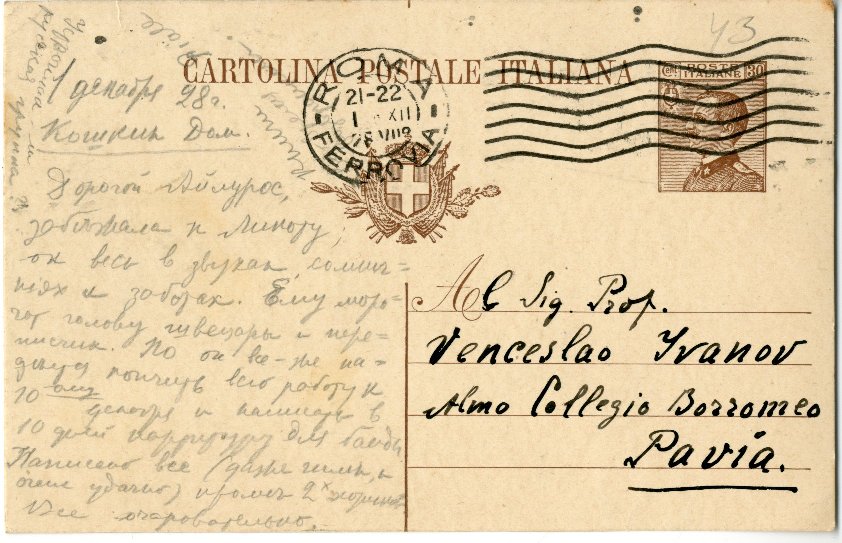 43
CARTOLINA POSTALE ITALIANA
ROMA
21-22
FERROVIA
POSTE ITALIANE
30
1 декабря 28 г.
Кошкин Дом.
Дорогой Айлурос,
забежала к
он весь в звуках, сомне-
ниях и заботах. Ему моро-
чат голову швейцары и пере-
писчик. Но он все-же на-
кончить всю работу к
10 декабря и написать в
10 дней для банды
Написано все (даже гимн, и
очень удачно) кроме 2х
Все очаровательно.
Al Sig. Prof.
Venceslao Ivanov
Almo Collegio Borromeo
Pavia.